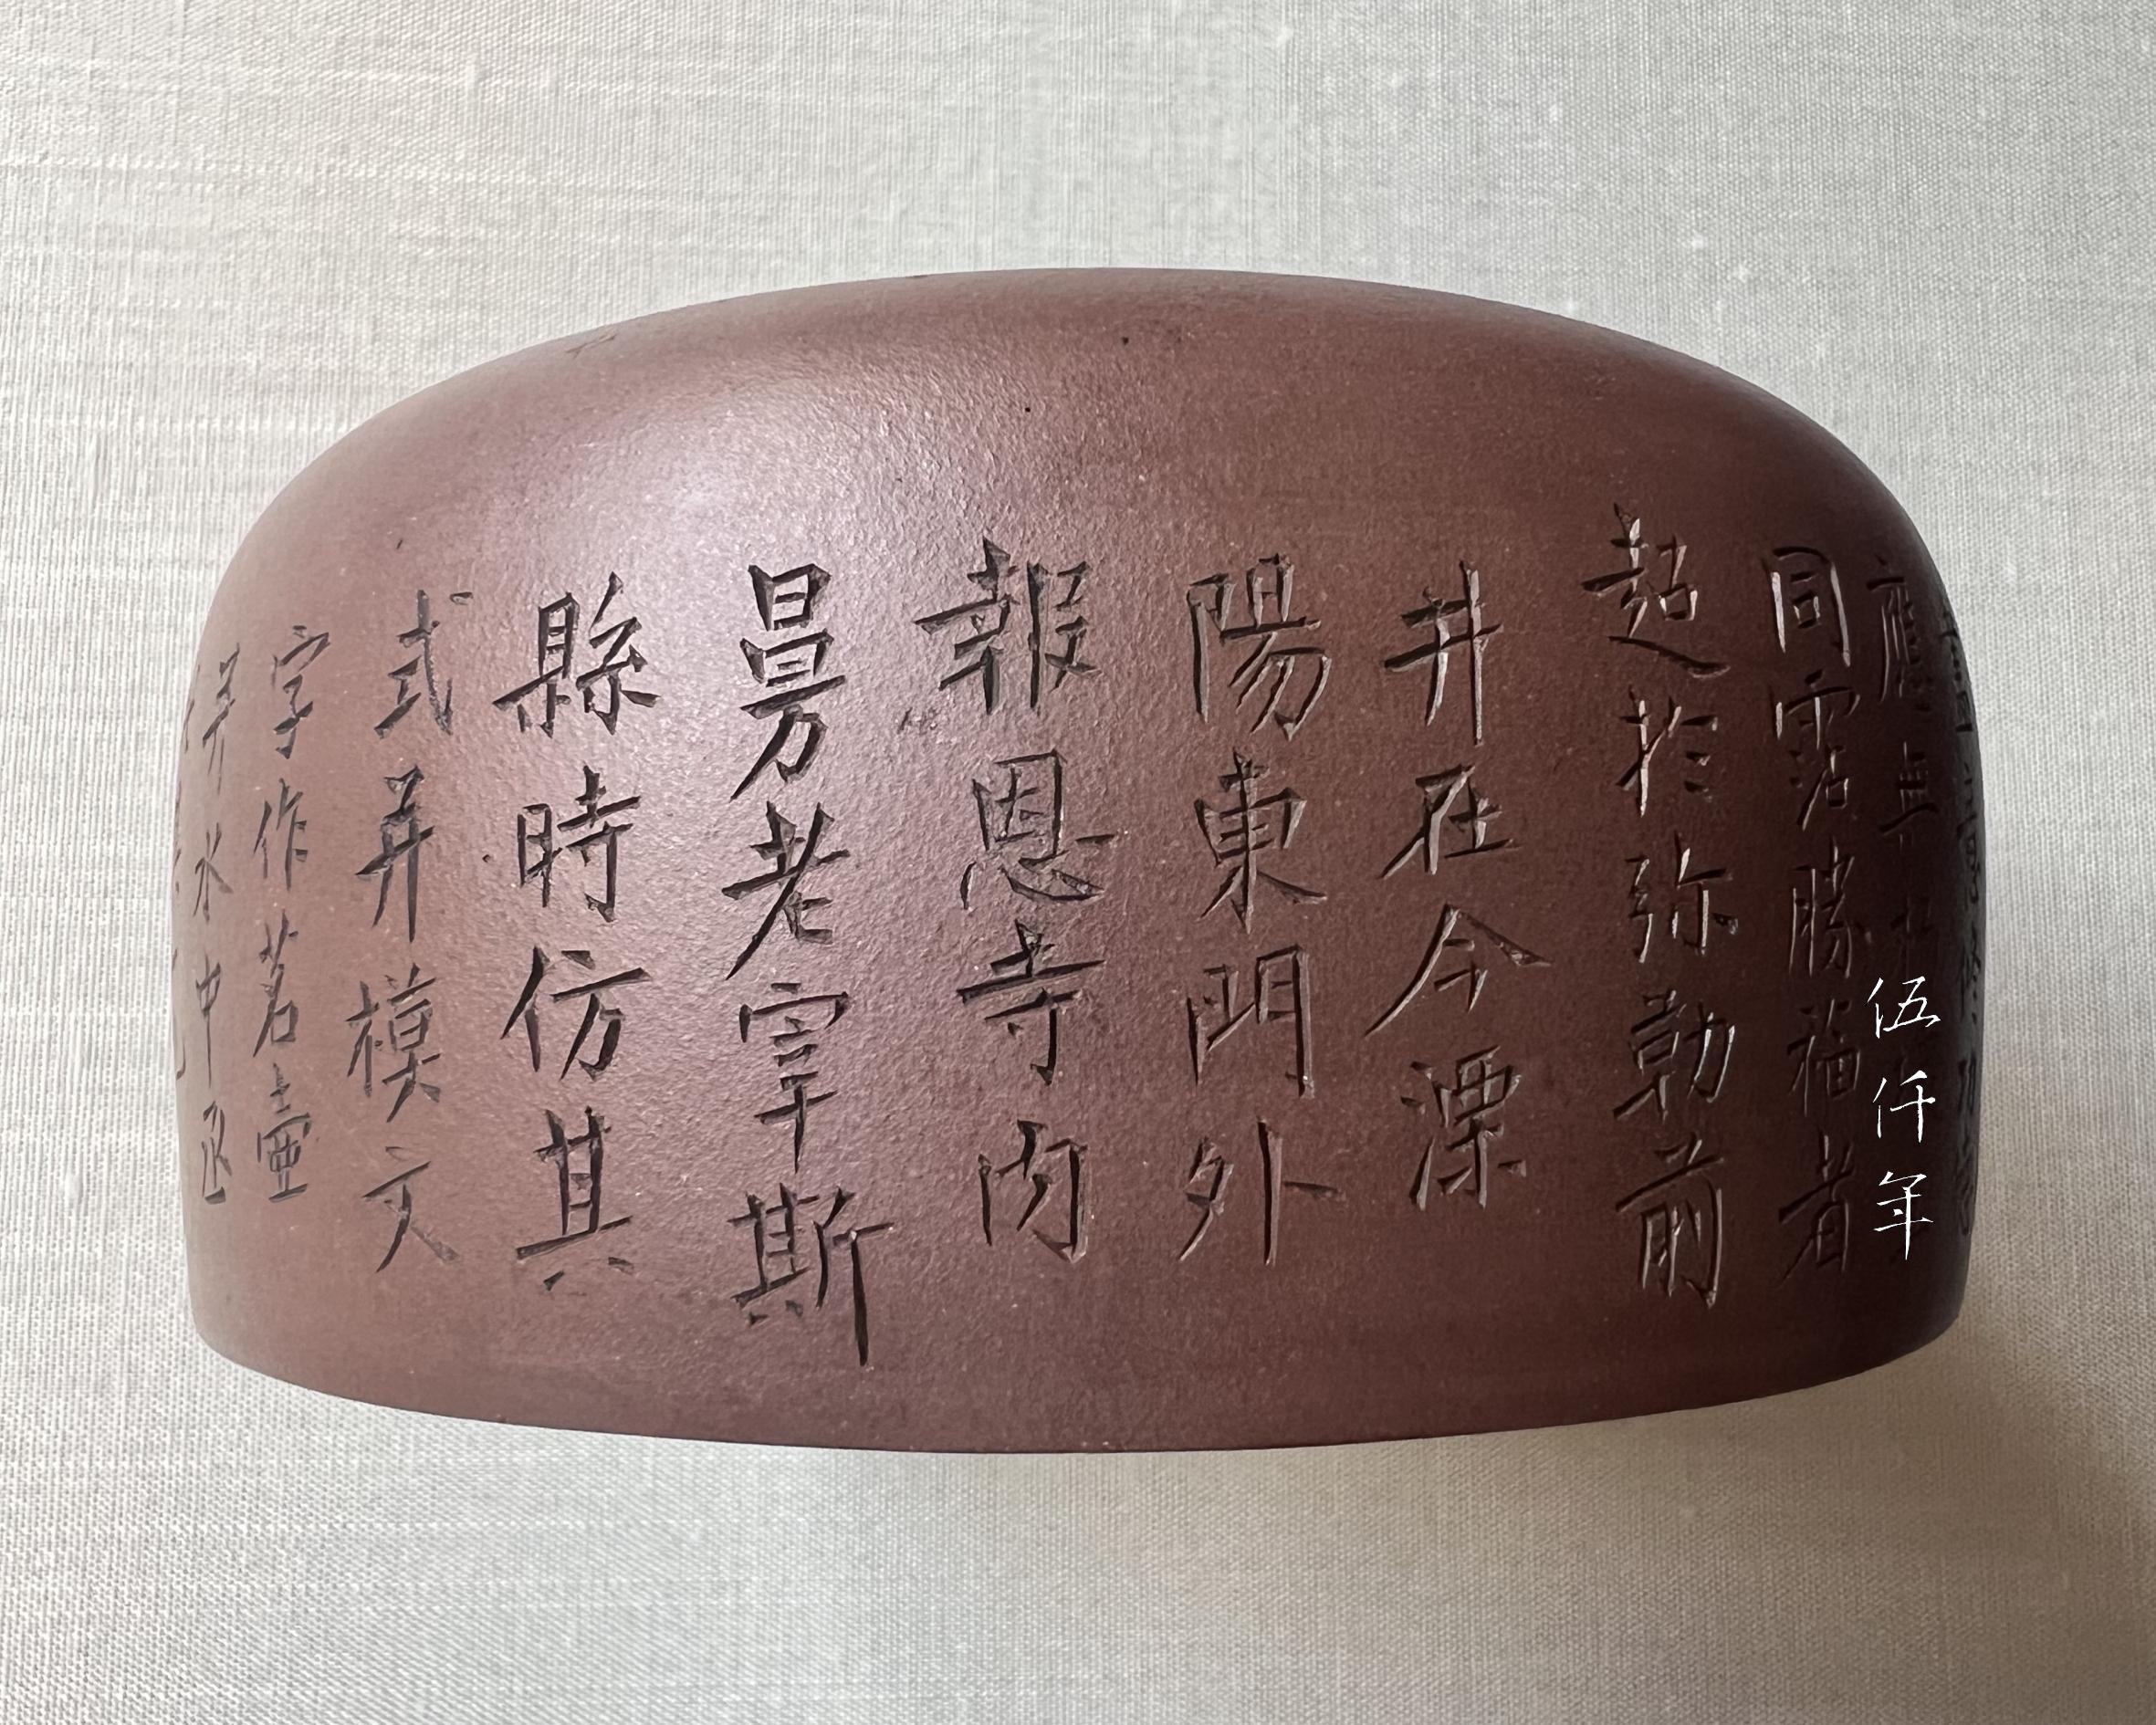 同霑勝福者
超於弥勒前
井在今溧
陽東門外
報恩寺内
曼老宰斯
縣時仿其
式并模文
字作茗壺
并水中丞
伍仟年